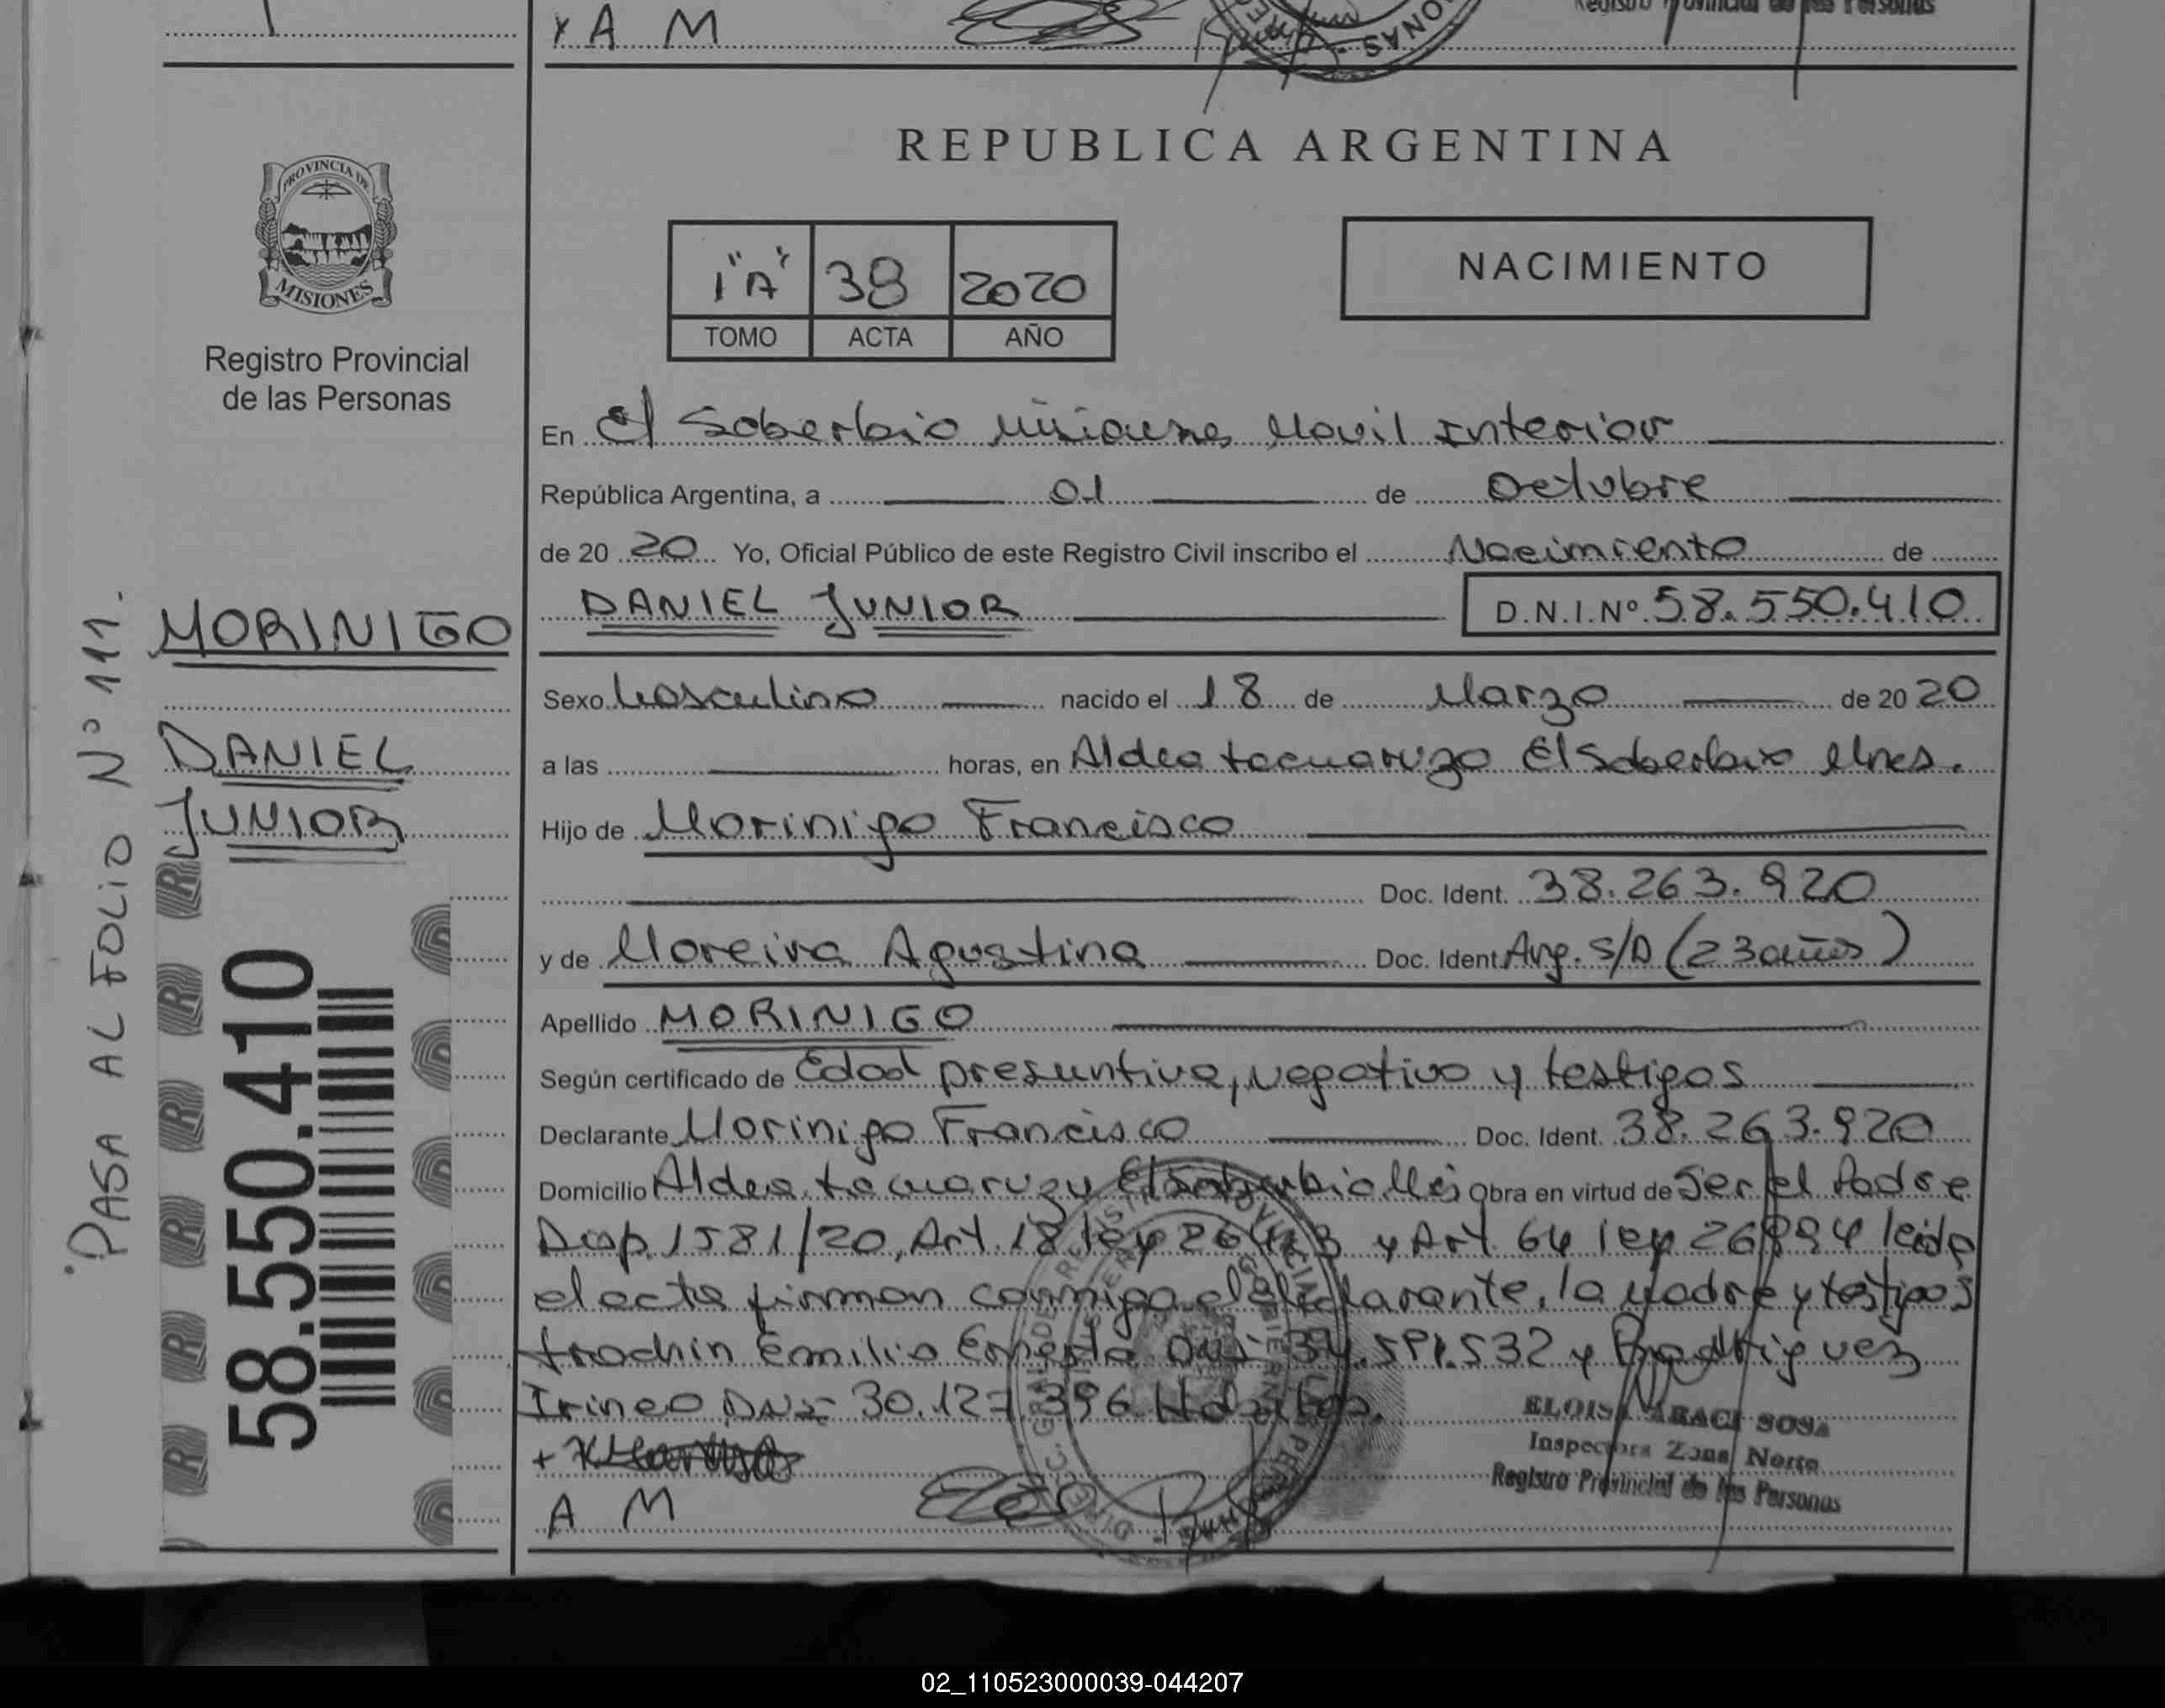 Y A M
Registro Provincial de las Personas
REPUBLICA ARGENTINA
PROVINCIA DE
MISIONES
Registro Provincial
de las Personas
1"A" 38 2020
TOMO ACTA AÑO
NACIMIENTO
En El Soberbio Misiones Movil Interior
República Argentina, a 01 de Octubre
de 20 20 Yo, Oficial Público de este Registro Civil inscribo el Nacimiento de
DANIEL JUNIOR D.N.I.Nº 58.550.410
MORINIGO
DANIEL
JUNIOR
PASA AL FOLIO Nº 111.
58.550.410
Sexo Masculino nacido el 18 de Marzo de 20 20
a las horas, en Aldea tacuaruzo El Soberbio Mnes.
Hijo de Morinigo Francisco
Doc. Ident. 38.263.920
y de Moreira Agustina Doc. Ident. Arg. S/D (23 años)
Apellido MORINIGO
Según certificado de Edad presuntiva, negativo y testigos
Declarante Morinigo Francisco Doc. Ident. 38.263.920
Domicilio Aldea tacuaruzu El Soberbio Mis Obra en virtud de Ser el Padre
Disp. 1581/20, Art. 18 ley 26413 y Art 64 ley 26994 leida
el acta firman conmigo el declarante, la madre y testigos
trochin Emilio Ernesto DNI 34.591.532 y Rodriguez
Irineo DNI 30.127.396
A M
ELOISA ARACI SOSA
Inspectora Zona Norte
Registro Provincial de las Personas
02_110523000039-044207